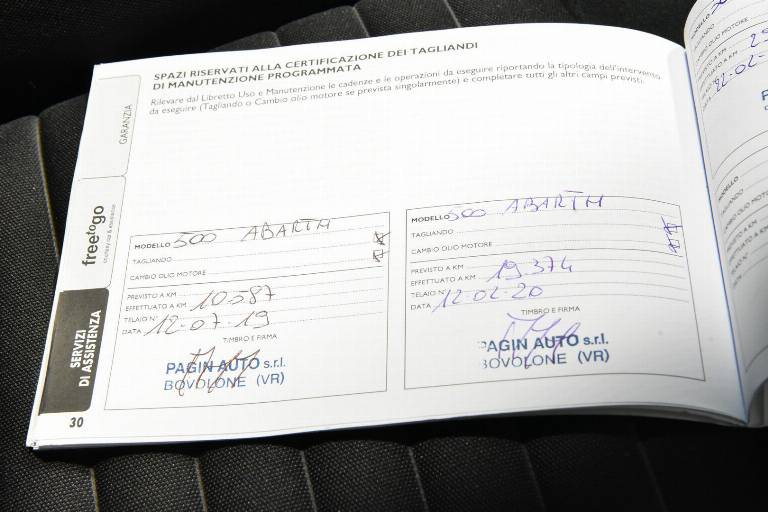 SPAZI RISERVATI ALLA CERTIFICAZIONE DEI TAGLIANDI
DI MANUTENZIONE PROGRAMMATA
Rilevare dal Libretto Uso e Manutenzione le cadenze e le operazioni da eseguire riportando la tipologia dell'intervento
da eseguire (Tagliando o Cambio olio motore se prevista singolarmente) e completare tutti gli altri campi previsti.
GARANZIA
freetogo
SERVIZI
DI ASSISTENZA
30
MODELLO 500 ABARTH
TAGLIANDO
CAMBIO OLIO MOTORE
PREVISTO A KM
EFFETTUATO A KM 10.587
TELAIO N°
DATA 12-07-19
TIMBRO E FIRMA
PAGIN AUTO s.r.l.
BOVOLONE (VR)
MODELLO 500 ABARTH
TAGLIANDO
CAMBIO OLIO MOTORE
PREVISTO A KM
EFFETTUATO A KM 19.374
TELAIO N°
DATA 12-02-20
TIMBRO E FIRMA
PAGIN AUTO s.r.l.
BOVOLONE (VR)